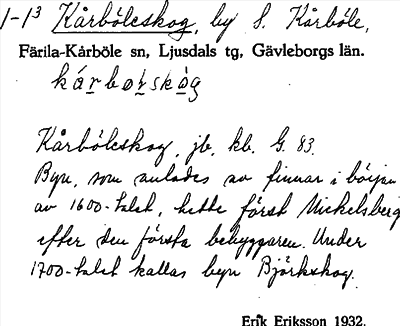 1-1³ Kårböleskog, by S. Kårböle,
Färila-Kårböle sn, Ljusdals tg, Gävleborgs län.
Kårböleskog, jb, kb. G. 83.
Byn, som anlades av finnar i början
av 1600-talet, hette först Mickelsberg
efter den första bebyggaren. Under
1700-talet kallas byn Björkskog.
Erik Eriksson 1932.